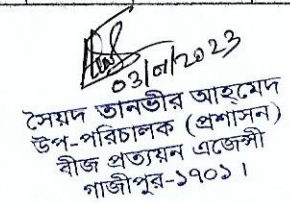 03/01/2023
সৈয়দ তানভীর আহমেদ
উপ-পরিচালক (প্রশাসন)
বীজ প্রত্যয়ন এজেন্সী
গাজীপুর-১৭০১।